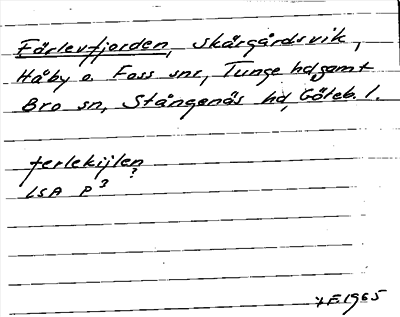 Färlevfjorden, skärgårdsvik,
Håby o. Foss snr, Tunge hd samt
Bro sn, Stångenäs hd, Göteb. l.
ferlekijlen
?
LSA P³
HE 1965